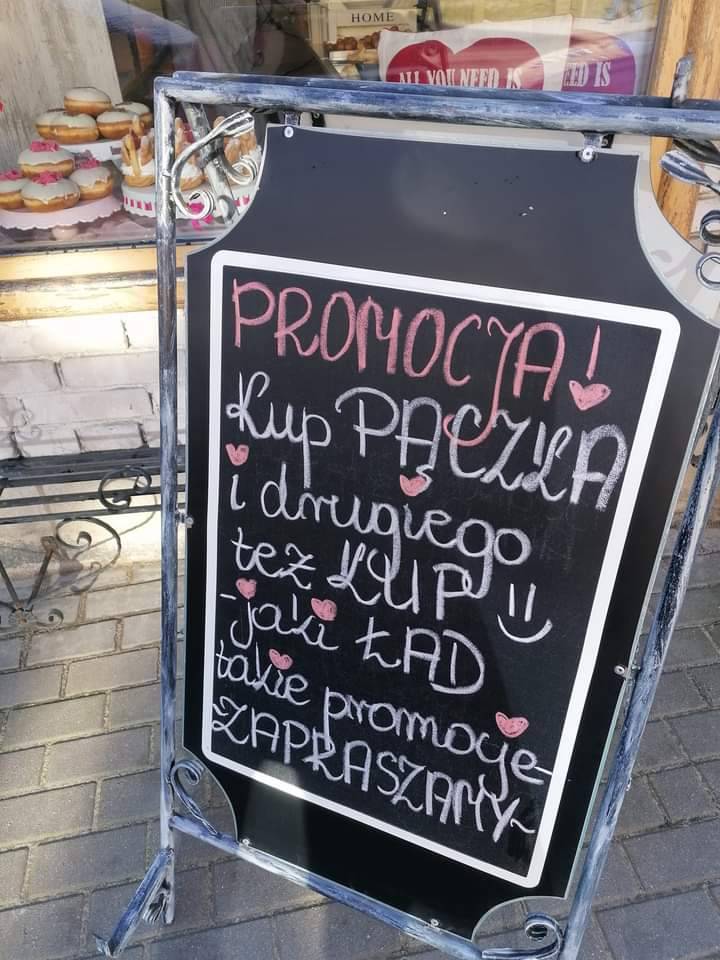 HOME
ALL YOU NEED IS
EED IS
PROMOCJA!
Kup PĄCZKA
i drugiego
też KUP
- jaki ŁAD
takie promocje -
~ZAPRASZAMY~